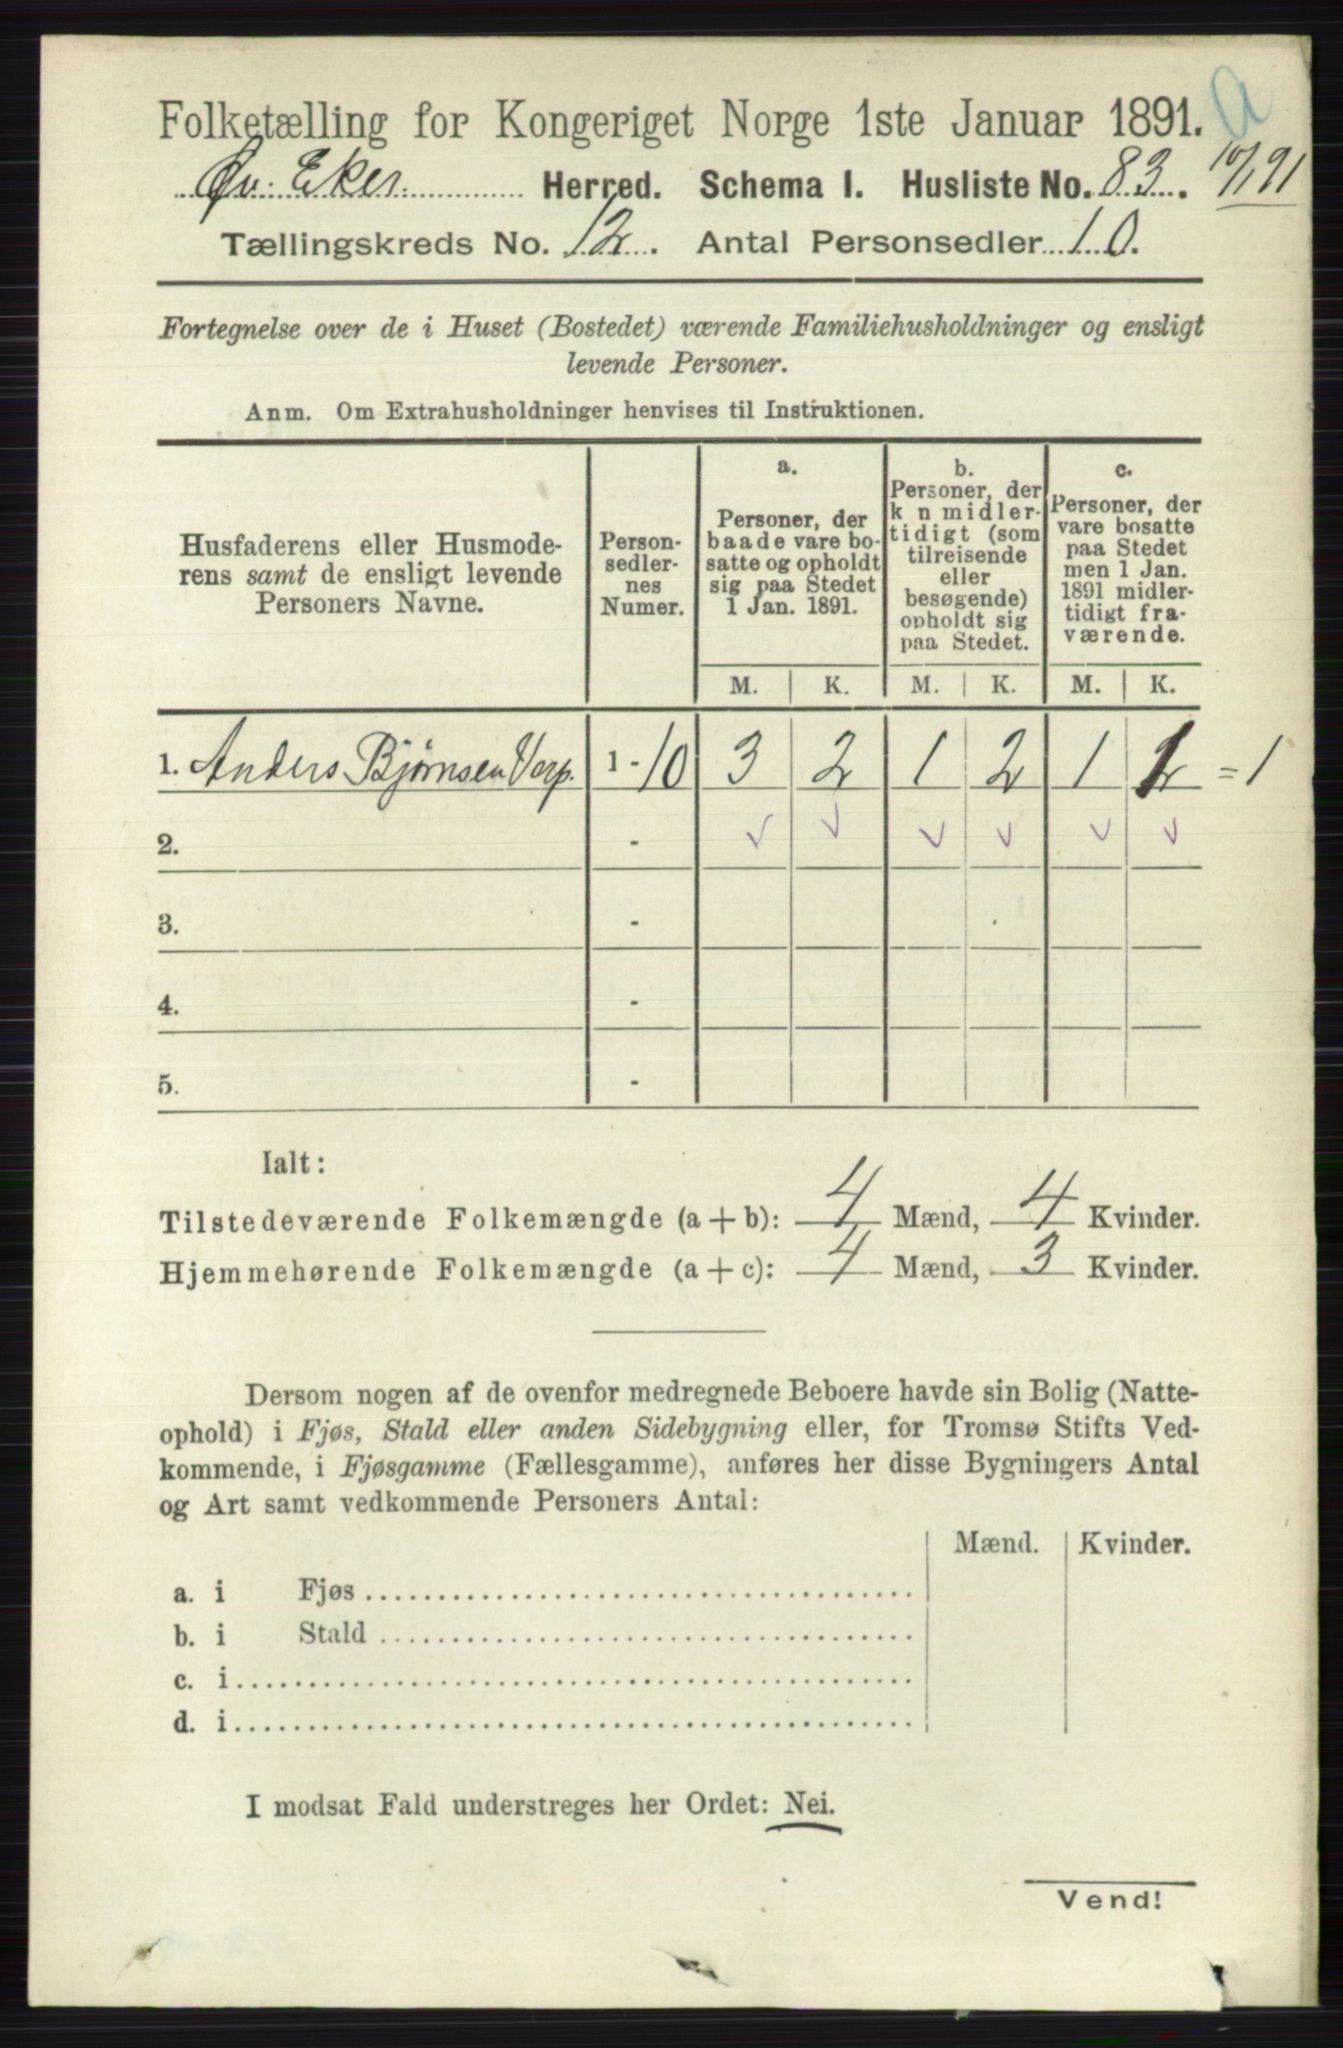 Folketælling for Kongeriget Norge 1ste Januar 1891.
Øv. Eker Herred. Schema I. Husliste No. 83.
Tællingskreds No. 12. Antal Personsedler 10.
Fortegnelse over de i Huset (Bostedet) værende Familiehusholdninger og ensligt
levende Personer.
Anm. Om Extrahusholdninger henvises til Instruktionen.
Husfaderens eller Husmode-
rens samt de ensligt levende
Personers Navne.
Person-
sedler-
nes
Numer.
a.
Personer, der
baade vare bo-
satte og opholdt
sig paa Stedet
1 Jan. 1891.
b.
Personer, der
k n midler-
tidigt (som
tilreisende
eller
besøgende)
opholdt sig
paa Stedet.
c.
Personer, der
vare bosatte
paa Stedet
men 1 Jan.
1891 midler-
tidigt fra-
værende.
M. K. M. K. M. K.
1. Anders Bjørnsen Verp. 1 - 10 3 2 1 2 1 1 = 1
2. - ✓ ✓ ✓ ✓ ✓ ✓
3. -
4. -
5. -
Ialt:
Tilstedeværende Folkemængde (a + b): 4 Mænd, 4 Kvinder.
Hjemmehørende Folkemængde (a + c): 4 Mænd, 3 Kvinder.
Dersom nogen af de ovenfor medregnede Beboere havde sin Bolig (Natte-
ophold) i Fjøs, Stald eller anden Sidebygning eller, for Tromsø Stifts Ved-
kommende, i Fjøsgamme (Fællesgamme), anføres her disse Bygningers Antal
og Art samt vedkommende Personers Antal:
Mænd. Kvinder.
a. i Fjøs
b. i Stald
c. i
d. i
I modsat Fald understreges her Ordet: Nei.
Vend!